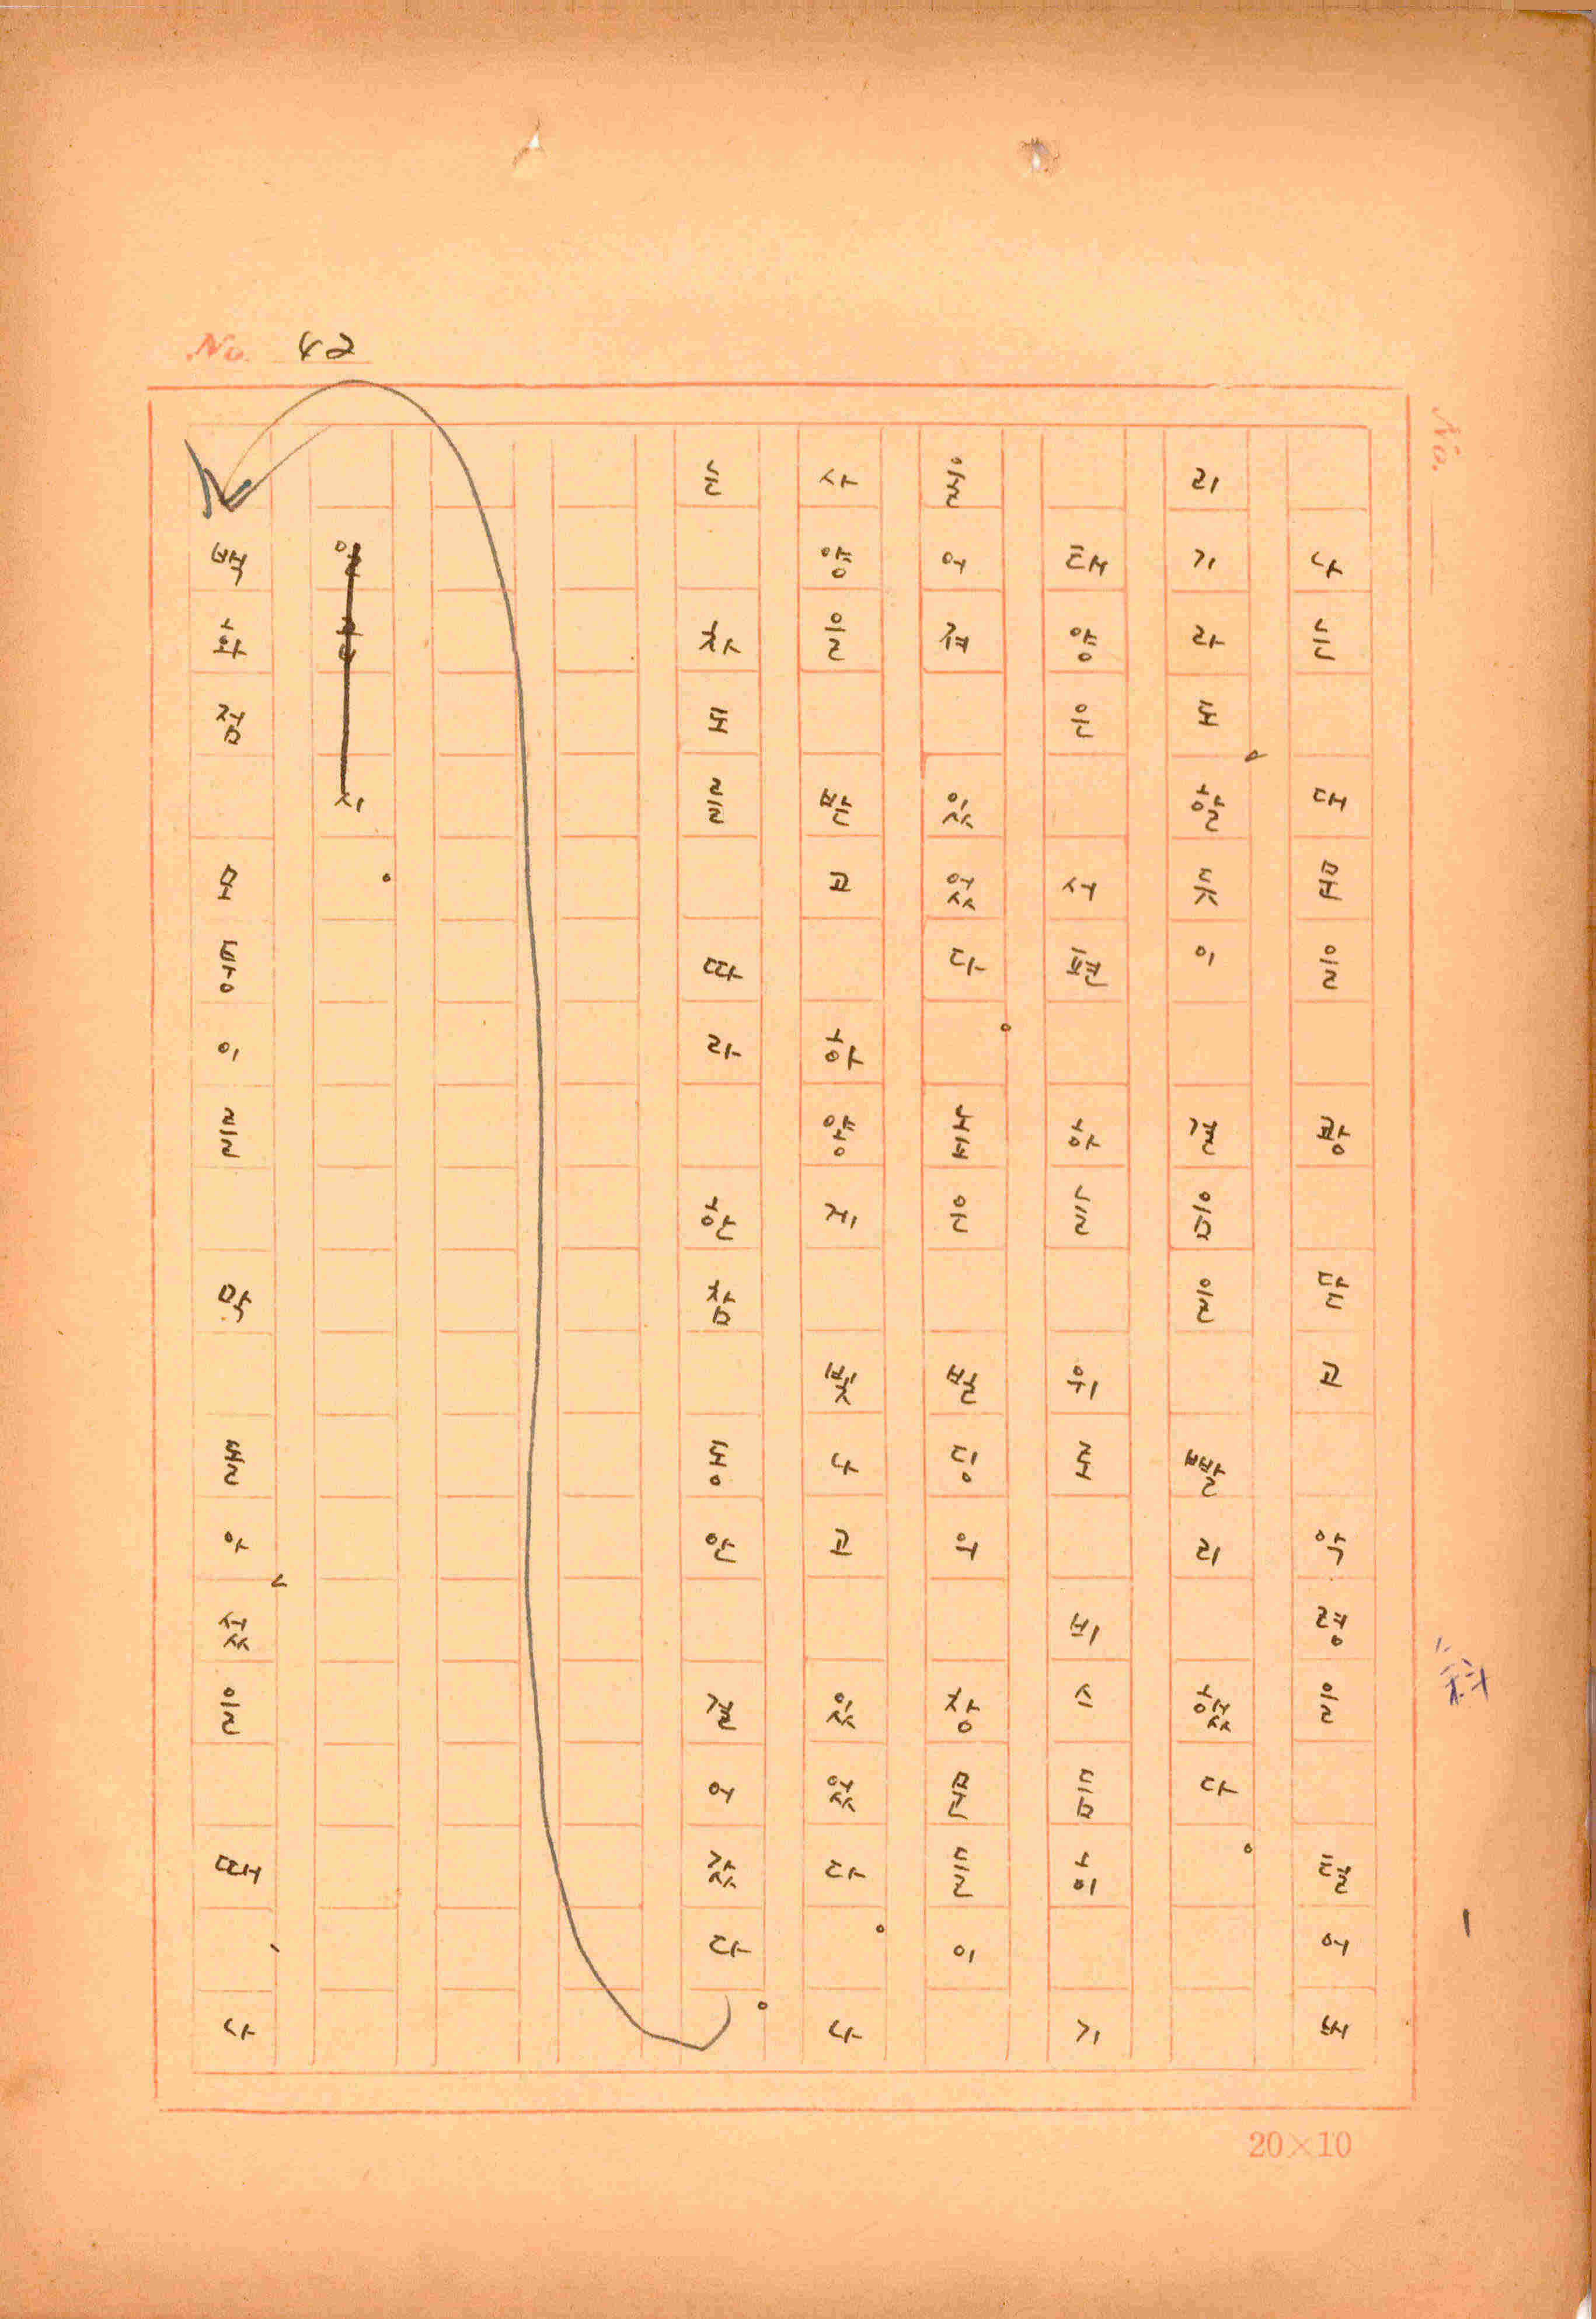 No. 42
나는 대문을 쾅 닫고 악령을 털어버
리기라도, 할듯이 걸음을 빨리 했다。
태양은 서편 하늘 위로 비스듬히 기
울어져 있었다。 높은 빌딩우 창문들이
사양을 받고 하얗게 빛나고 있었다。 나
는 차도를 따라 한참 동안 걸어갔다。
시。
백화점 모퉁이를 막 돌아, 섰을 때、 나
No.
20×10